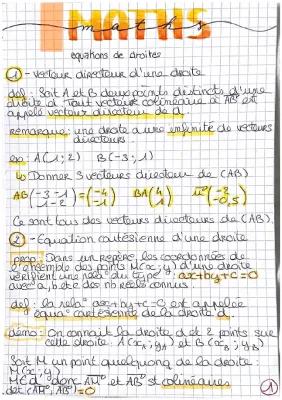 MATHS
maths
équations de droites
1 - vecteur directeur d'une droite
def : Soit A et B deux points distincts d'une
droite d. Tout vecteur colinéaire à AB est
appelé vecteur directeur de d.
remarque : une droite a une infinité de vecteurs
directeurs.
ex : A(1;2) B(-3;1)
↳ Donner 3 vecteurs directeurs de (AB)
AB(-3-1 1-2) = (-4 -1) BA(4 1) u(-2 -0,5)
Ce sont tous des vecteurs directeurs de (AB).
2 - Equation cartésienne d'une droite
prop : Dans un repère, les coordonnées de
l'ensemble des points M(x;y) d'une droite
vérifient une relº du type : ax+by+c=0
avec a, b et c des nb réels connus.
def : la relº ax+by+c=0 est appelée
equaº cartésienne de la droite d
démo : On connaît la droite d et 2 points sur
cette droite : A(xA;yA) et B(xB;yB)
Soit M un point quelconque de la droite :
M(x;y)
M∈d donc AM et AB st colinéaires
det(AM;AB)=0
1